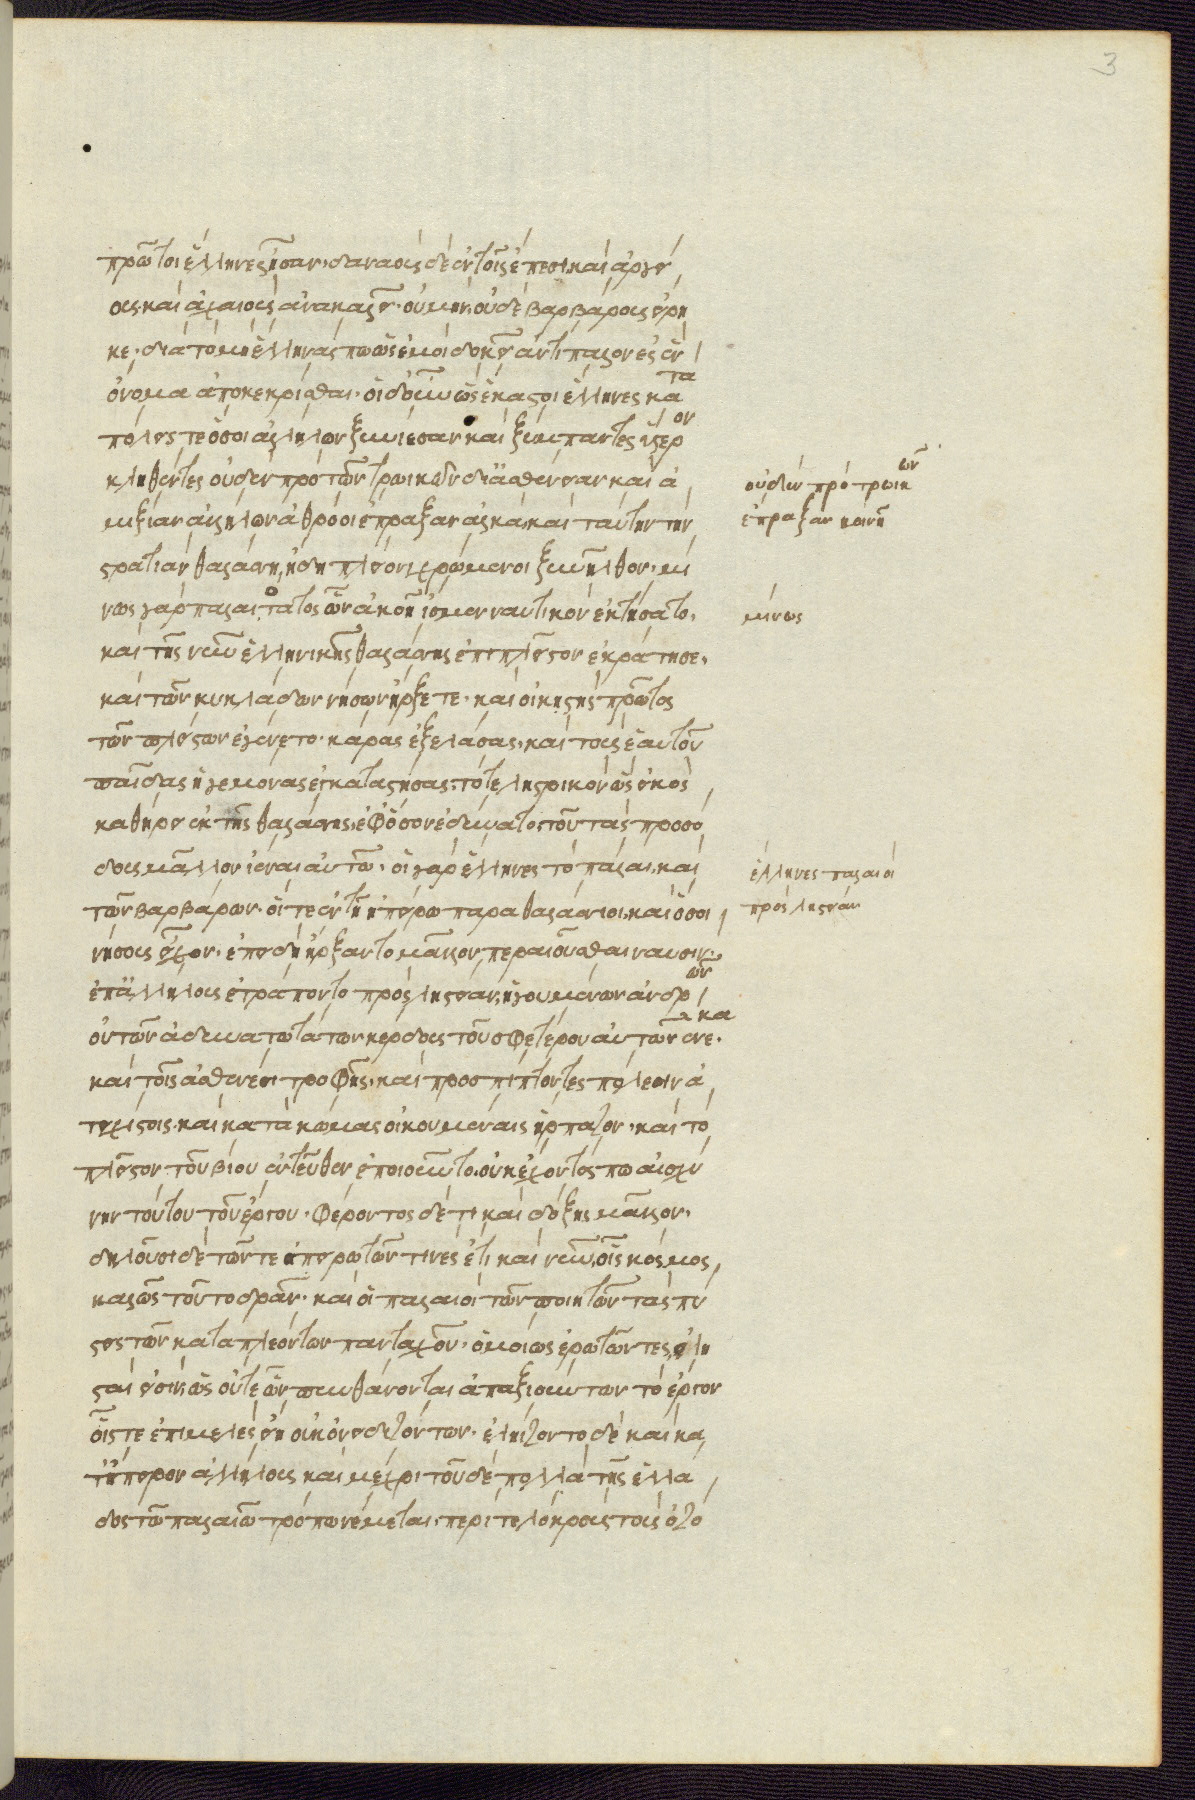 3
πρῶτοι ἕλληνες ἦσαν· δαναοὺς δὲ ἐν τοῖς ἔπεσι καὶ ἀργεί
ους καὶ ἀχαιοὺς ἀνακαλεῖ· οὐ μὴν οὐδὲ βαρβάρους εἴρη
κε· διὰ τὸ μὴ ἕλληνάς πω ὡς ἐμοὶ δοκεῖ ἀντίπαλον ἐς ἓν
ὄνομα ἀποκεκρίσθαι. οἱ δ' οὖν ὡς ἕκαστοι ἕλληνες κατὰ
πόλεις τε ὅσοι ἀλλήλων ξυνίεσαν καὶ ξύμπαντες ὕστερον
κληθέντες οὐδὲν πρὸ τῶν τρωικῶν δι' ἀσθένειαν καὶ ἀ
μιξίαν ἀλλήλων ἁθρόοι ἔπραξαν ἀλλὰ καὶ ταύτην τὴν
στρατιὰν θαλάσσῃ ἤδη πλείονι χρώμενοι ξυνῆλθον· μί
νως γὰρ παλαίτατος ὧν ἀκοῇ ἴσμεν ναυτικὸν ἐκτήσατο.
καὶ τῆς νῦν ἑλληνικῆς θαλάσσης ἐπὶ πλεῖστον ἐκράτησε.
καὶ τῶν κυκλάδων νήσων ἦρξέ τε· καὶ οἰκιστὴς πρῶτος
τῶν πλείστων ἐγένετο· κᾶρας ἐξελάσας, καὶ τοὺς ἑαυτοῦ
παῖδας ἡγεμόνας ἐγκαταστήσας· τό τε λῃστικὸν ὡς εἰκὸς
καθῄρει ἐκ τῆς θαλάσσης ἐφ' ὅσον ἐδύνατο τοῦ τὰς προσό
δους μᾶλλον ἰέναι αὐτῶ. οἱ γὰρ ἕλληνες τὸ πάλαι, καὶ
τῶν βαρβάρων οἵ τε ἐν τῇ ἠπείρω παραθαλάσσιοι, καὶ ὅσοι
νήσους εἶχον· ἐπειδὴ ἤρξαντο μᾶλλον περαιοῦσθαι ναυσὶν
ἐπ' ἀλλήλους ἐτράποντο πρὸς λῃστείαν, ἡγουμένων ἀνδρῶν
οὐ τῶν ἀδυνατωτάτων κέρδους τοῦ σφετέρου αὐτῶν ἕνεκα
καὶ τοῖς ἀσθενέσι τροφῆς. καὶ προσπίπτοντες πόλεσιν ἀ
τειχίστοις καὶ κατὰ κώμας οἰκουμέναις ἥρπαζον· καὶ τὸ
πλεῖστον τοῦ βίου ἐντεῦθεν ἐποιοῦντο, οὐκ ἔχοντός πω αἰσχύ
νην τούτου τοῦ ἔργου· φέροντος δέ τι καὶ δόξης μᾶλλον.
δηλοῦσι δὲ τῶν τε ἠπειρωτῶν τινες ἔτι καὶ νῦν, οἷς κόσμος
καλῶς τοῦτο δρᾶν· καὶ οἱ παλαιοὶ τῶν ποιητῶν τὰς πύ
στεις τῶν καταπλεόντων πανταχοῦ· ὁμοίως ἐρωτῶντες εἰ λῃ
σταί εἰσιν, ὡς οὔτε ὧν πυνθάνονται ἀπαξιούντων τὸ ἔργον
οἷς τε ἐπιμελὲς εἴη οὐκ ὀνειδιζόντων· ἐληίζοντο δὲ καὶ κα
τ' ἤπειρον ἀλλήλους καὶ μέχρι τοῦδε πολλὰ τῆς ἑλλά
δος τῶ παλαιῶ τρόπω νέμεται, περί τε λοκροὺς τοὺς ὀζό
οὐδὲν πρὸ τρωικῶν
ἔπραξαν κοινῇ
μίνως
ἕλληνες παλαιοὶ
πρὸς λῃστείαν